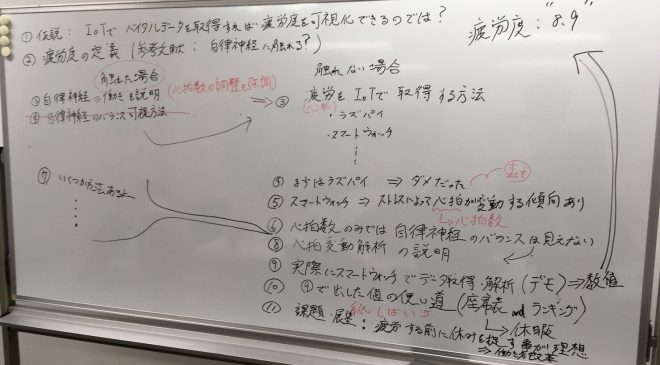 ① 仮説：IoTでバイタルデータを取得すれば疲労度を可視化できるのでは？
② 疲労度の定義（参考文献：自律神経に触れる？）
疲労度："8.9"
触れた場合
③ 自律神経の働きを説明（心拍数の調整を強調）
④ 自律神経のバランス可視方法
触れない場合
⇒ ③ 疲労をIoTで取得する方法
・ラズパイ
・スマートウォッチ
⑦ いくつか方法あるよー
④ まずはラズパイ ⇒ ダメだった
⑤ スマートウォッチ ⇒ ストレスによって心拍が変動する傾向あり
↳ 心拍数
⑥ 心拍数のみでは自律神経のバランスは見えない
⑧ 心拍変動解析の説明
⑨ 実際にスマートウォッチでデータ取得・解析（デモ）⇒ 数値
⑩ ⑨で出した値の使い道（座席表 and ランキング）
↳ 休暇
⑪ 課題・展望：疲労する前に休みを促す事が理想
⇒ 働き方改革